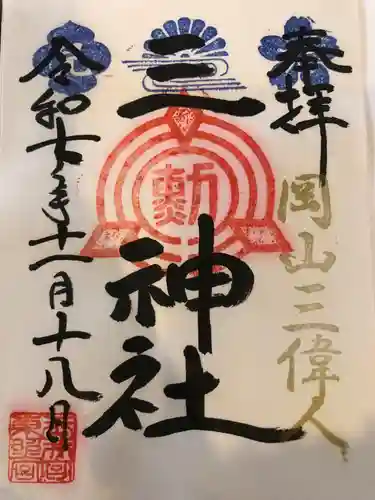 奉拝
岡山三偉人
三勲神社
令和六年十一月十八日